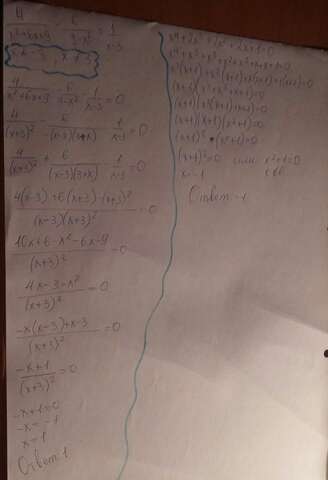 4/(x²+6x+9) - 6/(9-x²) = 1/(x-3)
x≠-3, x≠3
4/(x²+6x+9) - 6/(9-x²) - 1/(x-3) = 0
4/(x+3)² - 6/(-(x-3)(3+x)) - 1/(x-3) = 0
4/(x+3)² + 6/((x-3)(3+x)) - 1/(x-3) = 0
(4(x-3)+6(x+3)-(x+3)²)/((x-3)(x+3)²) = 0
(10x+6-x²-6x-9)/(x+3)² = 0
(4x-3-x²)/(x+3)² = 0
(-x(x-3)+x-3)/(x+3)² = 0
(-x+1)/(x+3)² = 0
-x+1=0
-x=-1
x=1
Ответ 1
x⁴+2x³+2x²+2x+1=0
x⁴+x³+x³+x²+x²+x+x+1=0
x³(x+1)+x²(x+1)+x(x+1)+(x+1)=0
(x+1)(x³+x²+x+1)=0
(x+1)(x²(x+1)+x+1)=0
(x+1)(x+1)(x²+1)=0
(x+1)²·(x²+1)=0
(x+1)²=0 или x²+1=0
x=-1
Ответ -1